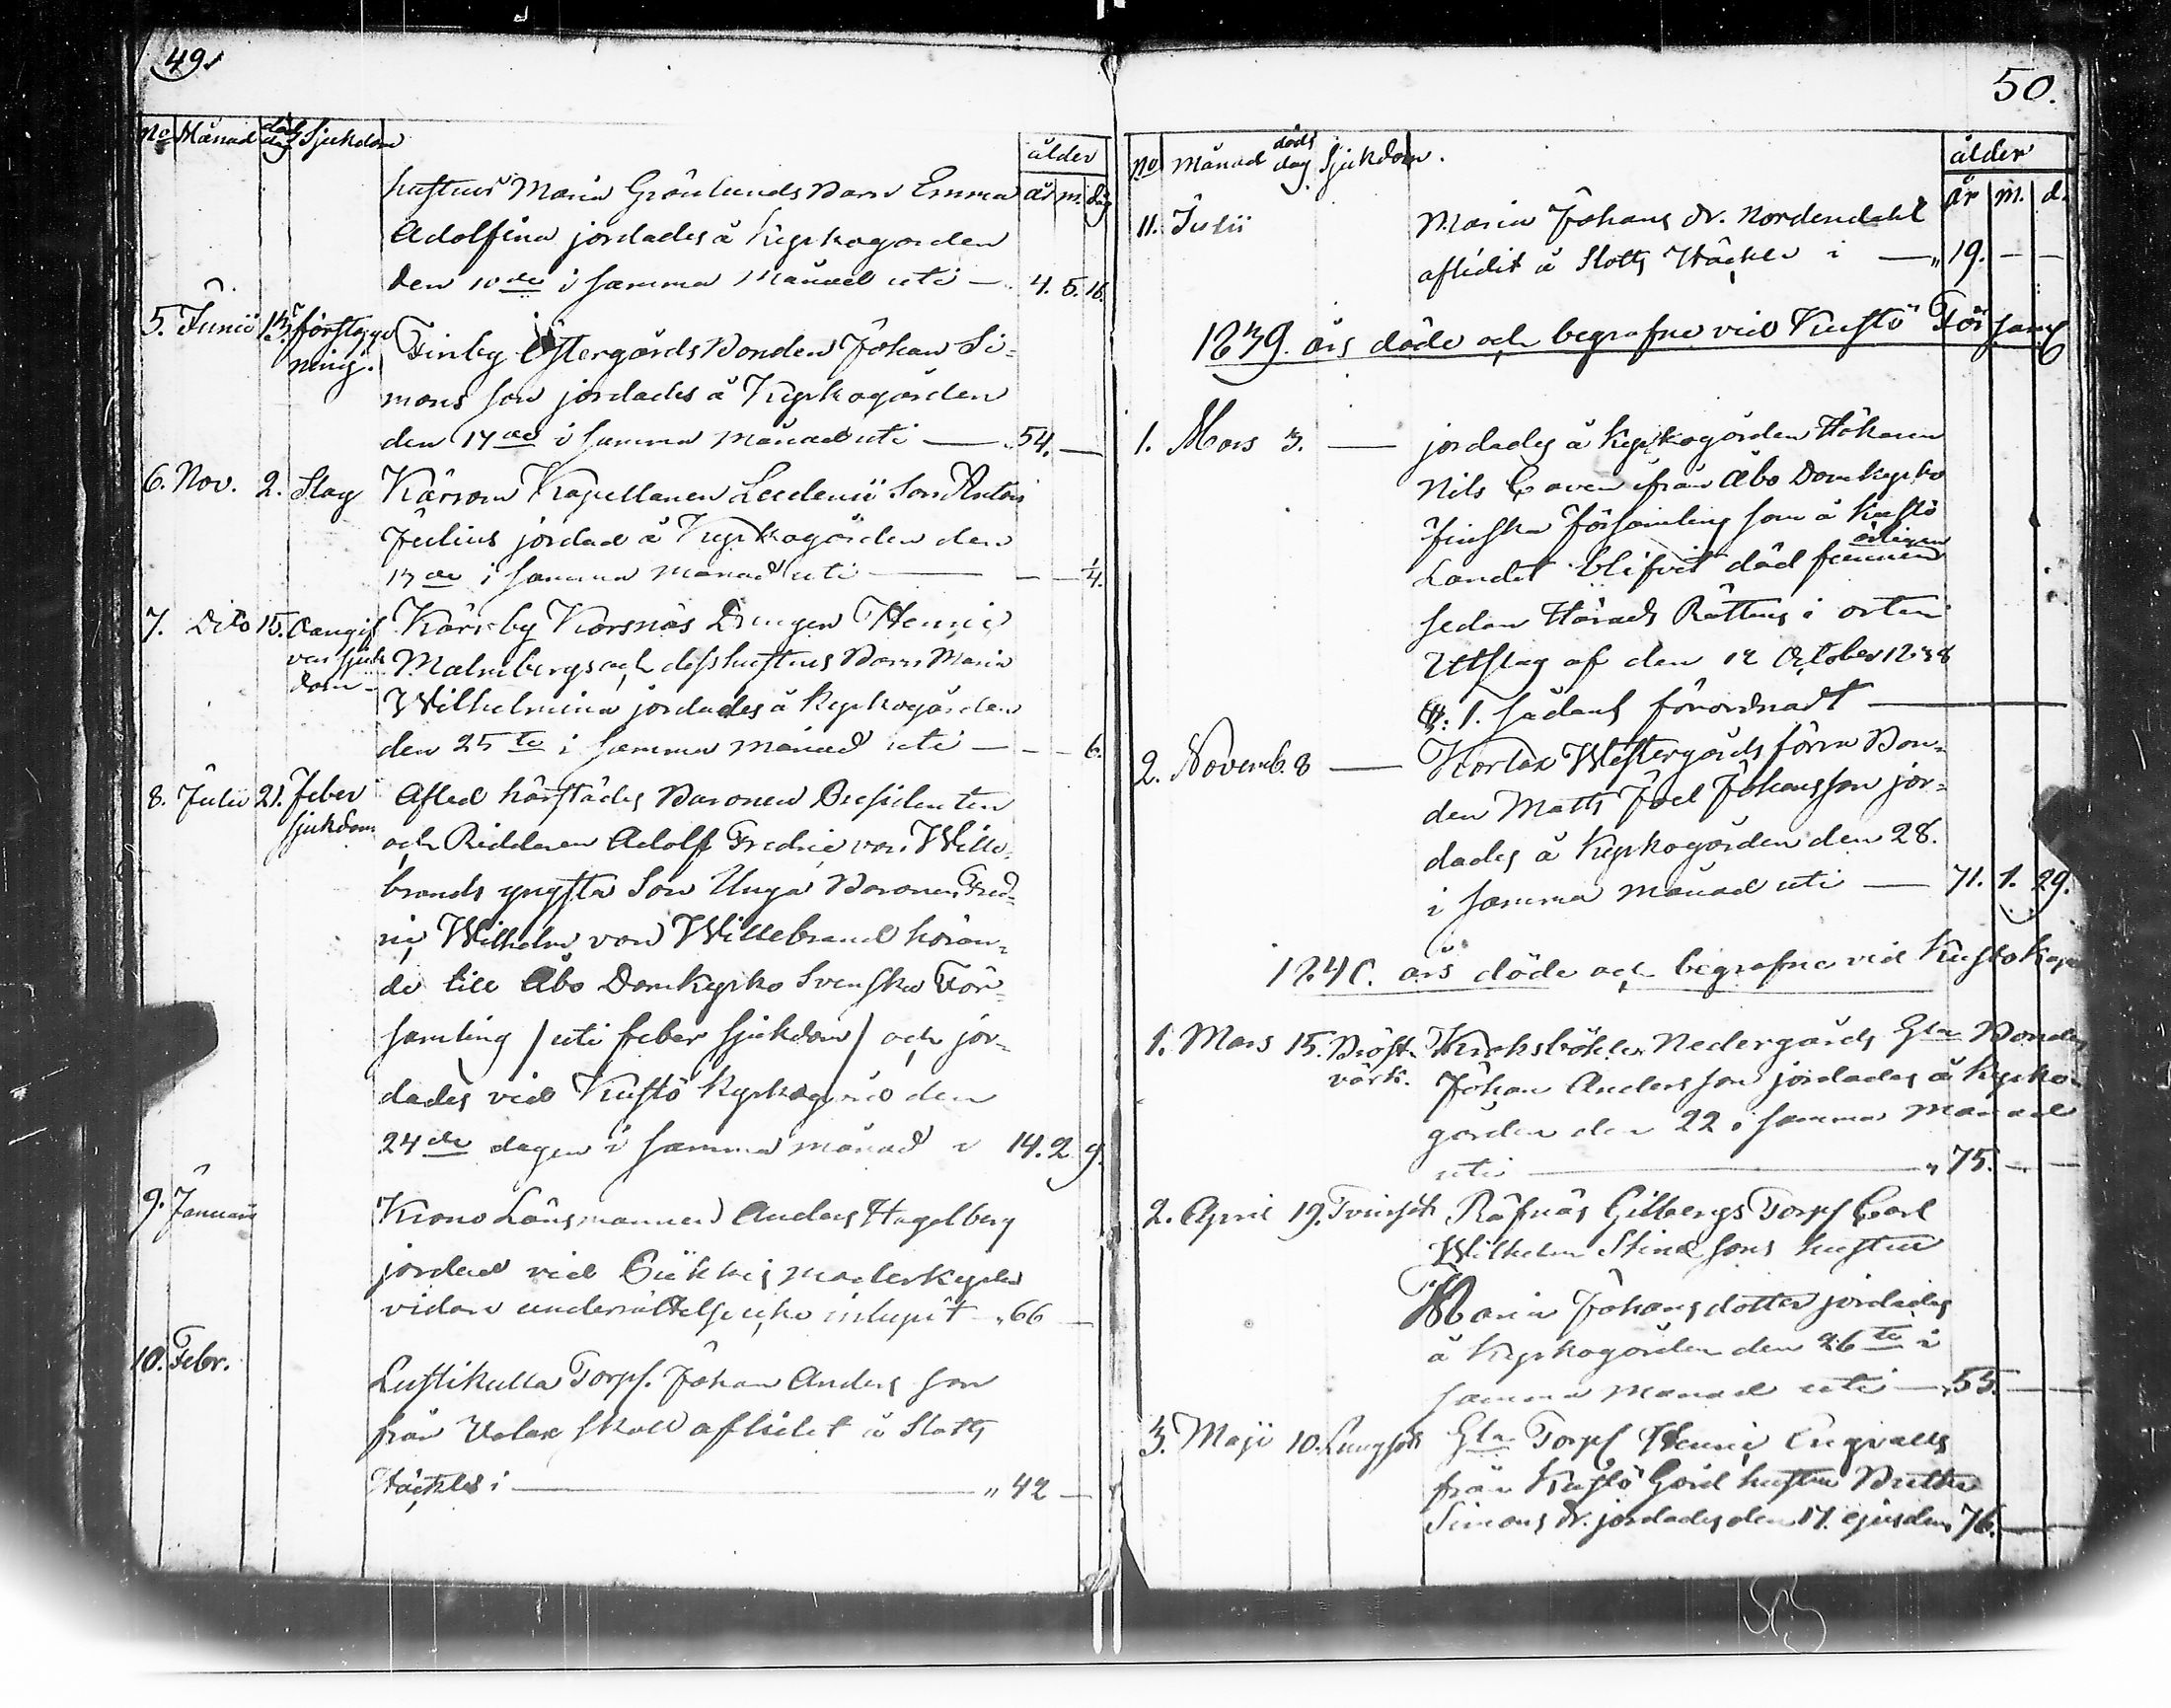 49.
No Månad döds dag Sjukdom
ålder
år m. dag
hustrus Maria Grönlunds Barn Emma
Adolfina jordades å Kyrkogården
den 10de i samma Månad uti — 4. 5. 16.
5. Junii 13. förstopp Finby Östergårds Bonden Johan Si=
ning. mons son jordades å Kyrkogården
den 17de i samma månad uti — 54. —
6. Nov. 2. Slag Kapellanen son Anton
Julius jordad å Kyrkogården den
i samma månad uti — — — 1/4.
7. Dito 15. Oangif Kärrby Korsnäs Drengen Henric
ven sjuk Malmbergs och dess hustrus Barn Maria
dom Wilhelmina jordades å kyrkogården
den 25te i samma månad uti — — — 6.
8. Julii 21. feber Afled härstädes Baronen Presidenten
sjukdom och Riddaren Adolf Fredric von Wille=
brands yngsta Son Unga Baronen Fred=
ric Wilhelm von Willebrand höran=
de till Åbo Domkyrko Svenska För=
samling / uti feber sjukdom / och jor=
dades vid Kustö Kyrkogård den
24de dagen i samma månad i 14. 2. 9.
9. Januarii Krono Länsmannen Anders Hagelberg
jordad vid Piikkis moderkyrka
vidare underrättelse icke inlupit „ 66 —
10. Febr. Lustikulla Torp. Johan Anders son
från skall aflidit å Slotts
Häcktet i — „ 42 —
50.
No Månad döds dag Sjukdom.
ålder
år m. d.
11. Julii Maria Johans dr. Nordendahl
aflidit å Slotts Häcktet i — „ 19. — —
1839. års döde och begrafne vid Kustö För saml
1. Mars 3. — jordades å kyrkogården Hökaren
Nils ifrån Åbo Domkyrko
finska församling som å Kustö
Landet blifvit död funnen
sedan Härads Rättens i orten
Utslag af den 12 October 1838
§. 1. sådant förordnadt —
2. Novemb. 8 — Westergårds förra Bon=
den Matts Joel Johansson jor=
dades å Kyrkogården den 28.
i samma månad uti — 71. 1. 29.
1840. års döde och begrafne vid Kustö Kap
1. Mars 15. Bröst Nedergårds Gla Bonden
värk. Johan Andersson jordades å kyrko=
gården den 22 i samma månad
uti — „ 75. — —
2. April 19. Tvinsot Räfnäs Gillbergs Torp Carl
Wilhelm Stina sons hustru
Maria Johans dotter jordades
å Kyrkogården den 26te i
samma månad uti — „ 55. —
3. Maji 10. Lungsot Gla Torp Henric Engvalls
från Kustö Gård hustru
Simons dr. jordades den 17. ejusdem 76. —